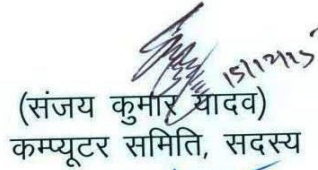 15/12/15
(संजय कुमार यादव)
कम्प्यूटर समिति, सदस्य